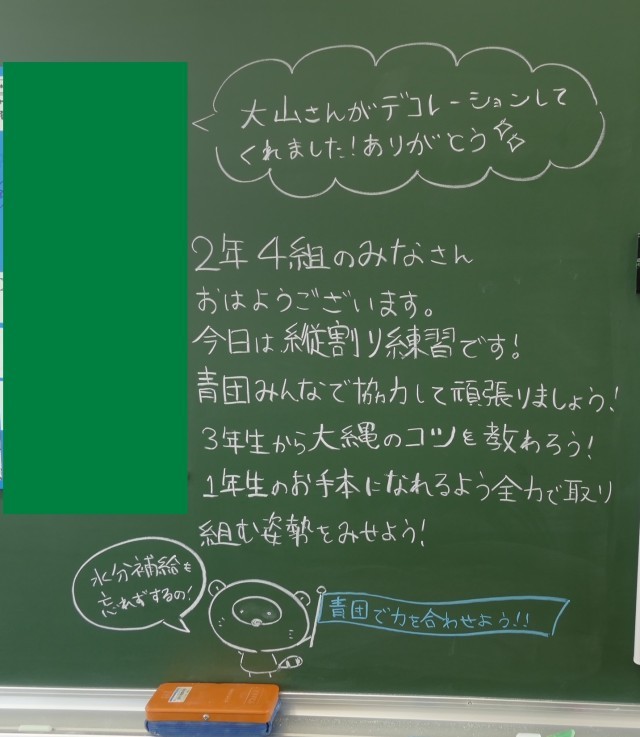 大山さんがデコレーションして
くれました!ありがとう
2年4組のみなさん
おはようございます。
今日は縦割り練習です!
青団みんなで協力して頑張りましょう!
3年生から大縄のコツを教わろう!
1年生のお手本になれるよう全力で取り
組む姿勢をみせよう!
水分補給も
忘れずするの!
青団で力を合わせよう!!